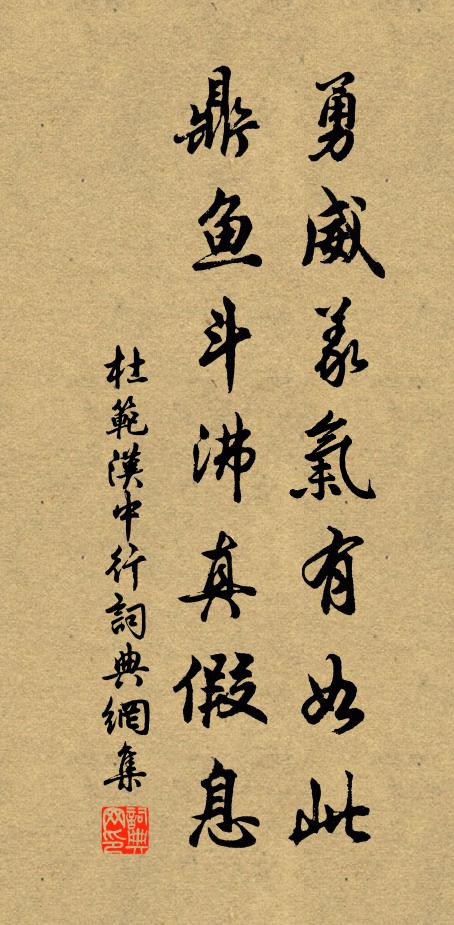 勇威義氣有如此
鼎鱼斗沸真假息
杜範漢中行詞典網集
詞典
网印